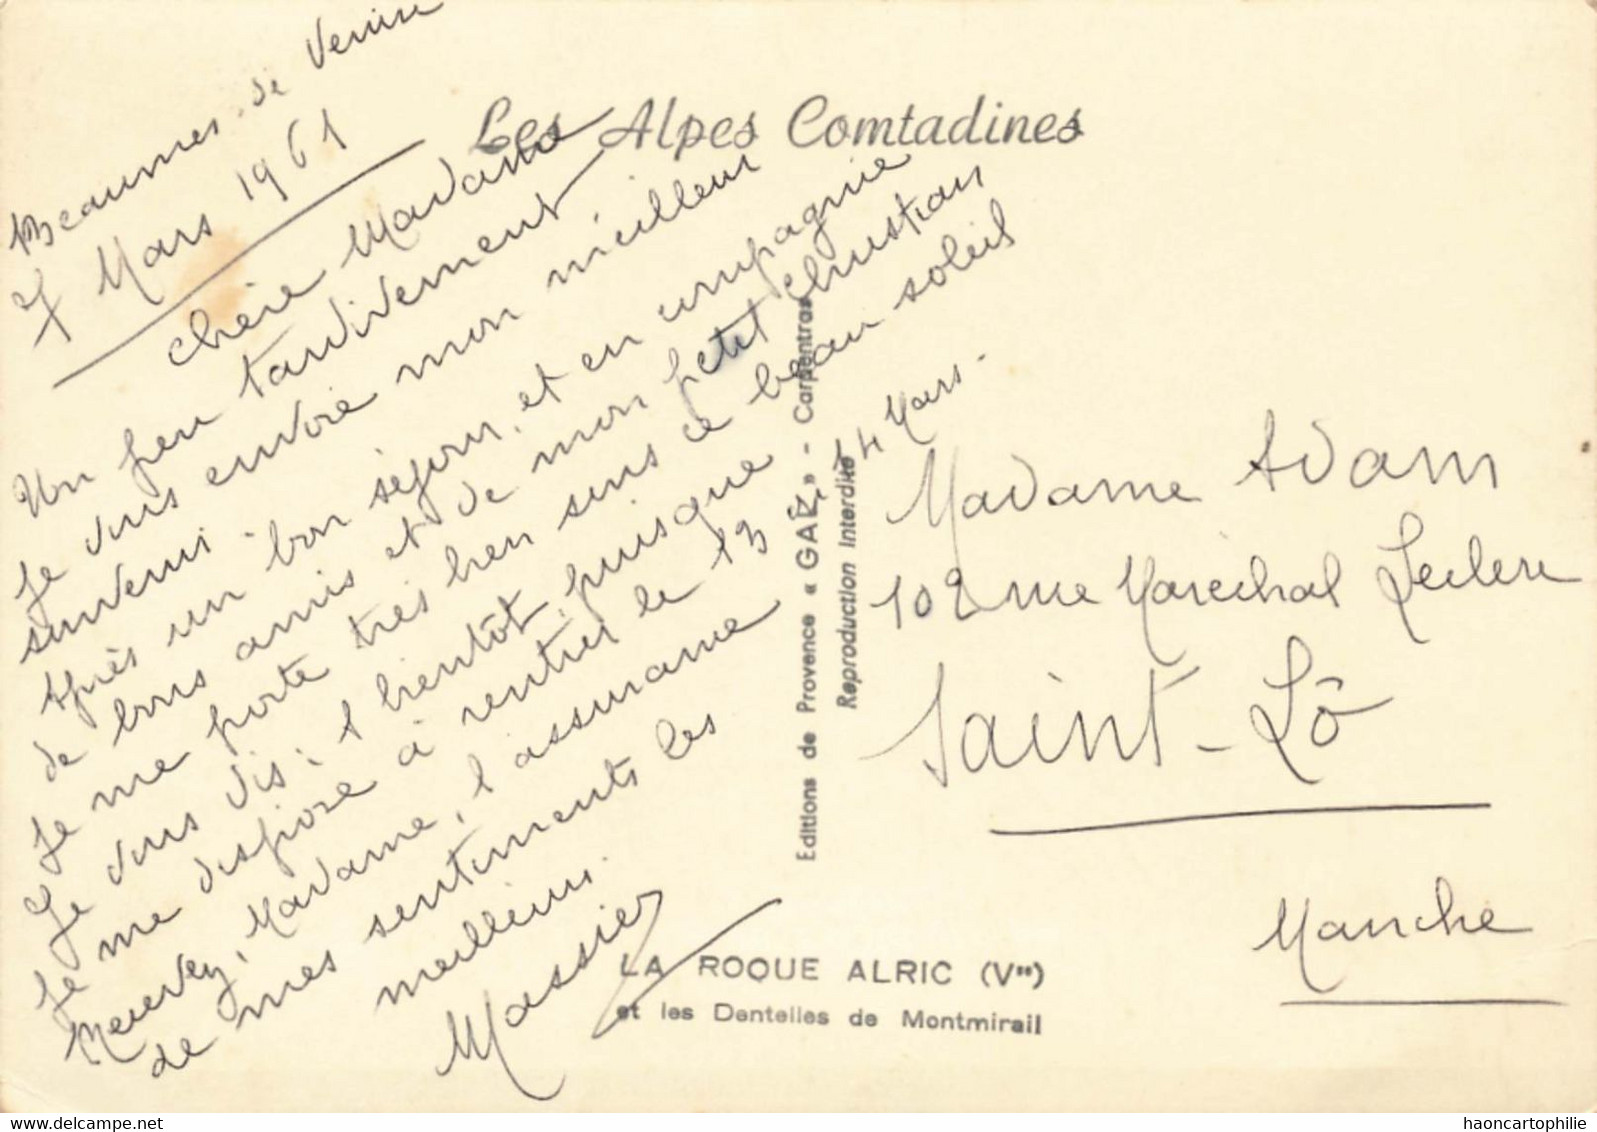 Les Alpes Comtadines
Beaumes-de Venise
7 Mars 1961
Chère Madame
Un peu tardivement
Je vous envoie mon meilleur
souvenir.
Après un bon séjour, et en compagnie
de bons amis et de mon petit Christian
Je me porte très bien sous ce beau soleil
Je vous dis: à bientôt, puisque
Je me dispose à rentrer le 13 ou 14 Mars.
Recevez, Madame, l'assurance
de mes sentiments les
meilleurs.
Massier
Editions de Provence « GAL » - Carpentras
Reproduction Interdite
Madame Adam
102 rue Maréchal Leclerc
Saint-Lô
Manche
LA ROQUE ALRIC (Vse)
et les Dentelles de Montmirail
haoncartophilie